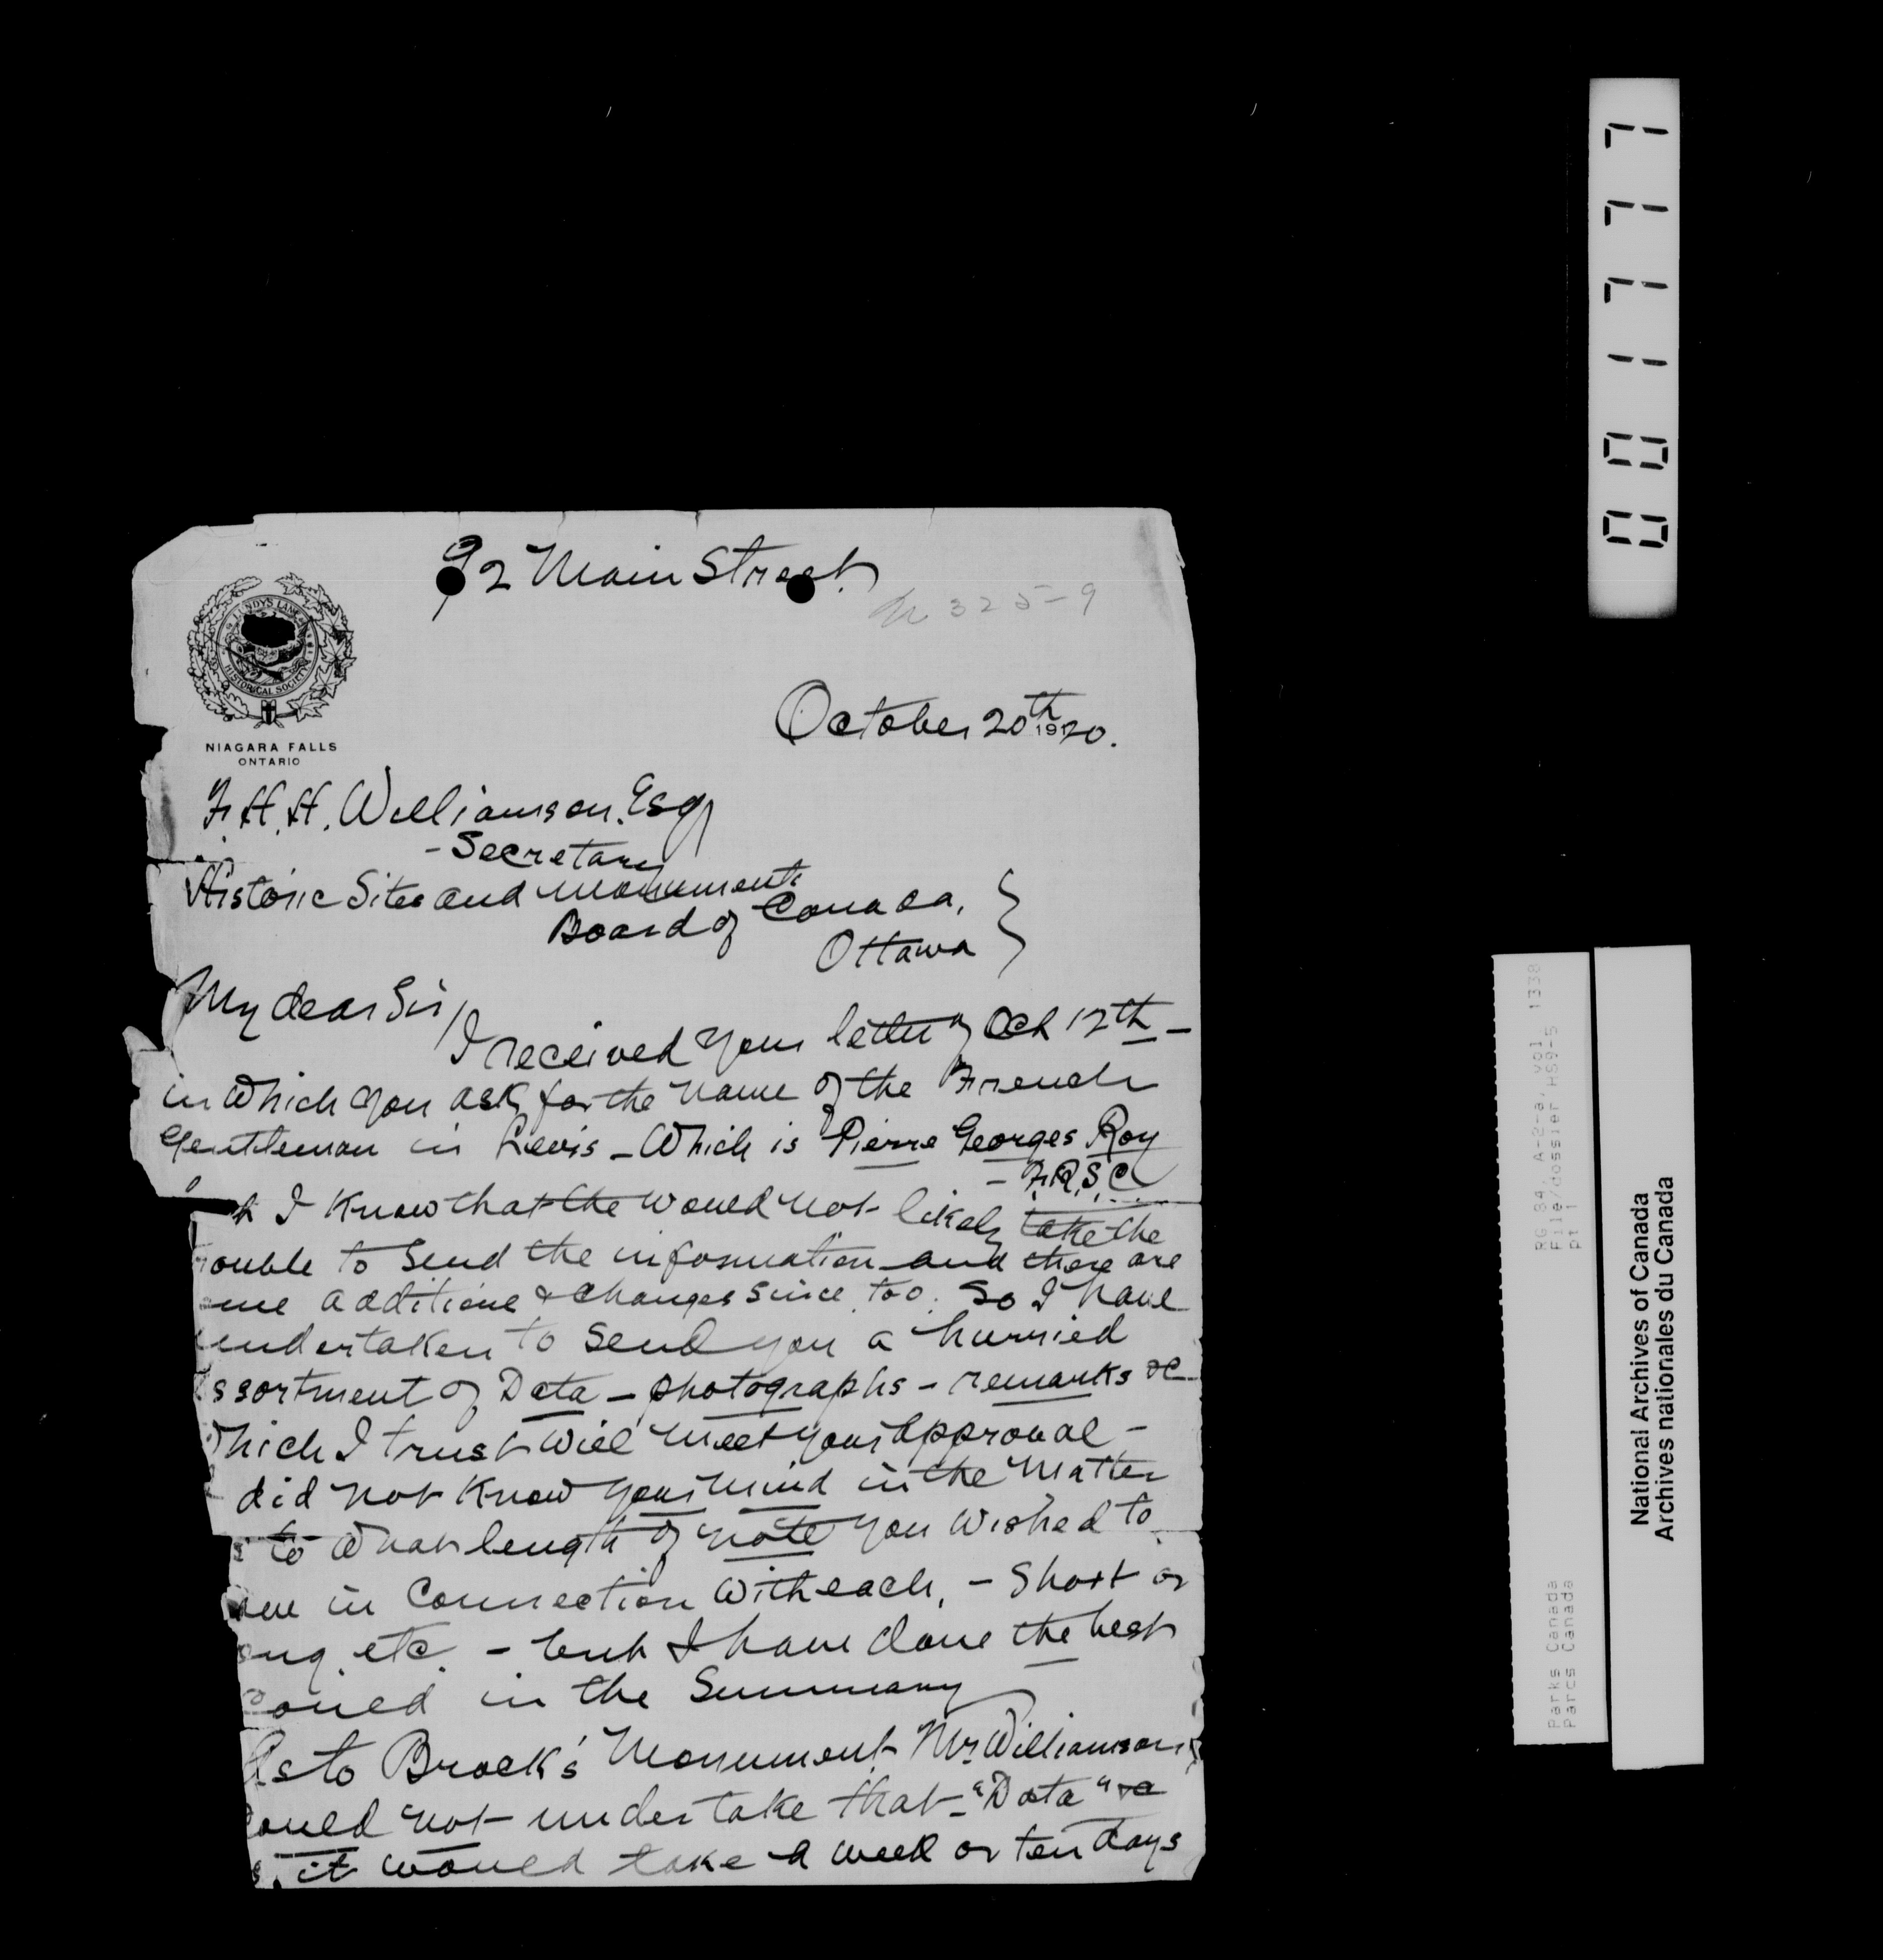 92 Main Street.
325-9
LUNDYS LANE
HISTORICAL SOCIETY
NIAGARA FALLS
ONTARIO
October 20th 1920.
F. H. H. Williamson. Esq
- Secretary
Historic Sites and Monuments
Board of Canada,
Ottawa
My dear Sir,
I received your letter of Oct 12th -
in which you ask for the name of the French
Gentleman in Levis - Which is Pierre Georges Roy
- F.R.S.C.
I know that he would not likely take the
rouble to send the information and there are
ome additions & changes since too. So I have
undertaken to send you a hurried
ssortment of Data - photographs - remarks &c
which I trust will meet your approval -
did not know your mind in the matter
s to what length of note you wished to
in connection with each, - Short or
ong. etc. - but I have done the best
could in the Summary
As to Brock's Monument Mr. Williamson
could not undertake that "Data" &c
s, it would take a week or ten days
001777
RG 84, A-2-a, vol. 1338
File/dossier HS9-5
pt 1
Parks Canada
Parcs Canada
National Archives of Canada
Archives nationales du Canada